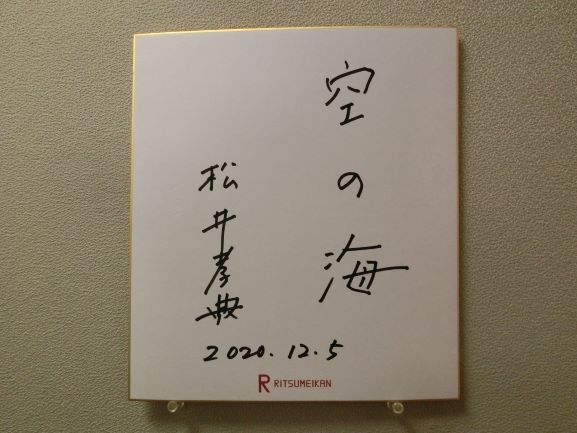 空の海
松井孝典
2020.12.5
RITSUMEIKAN